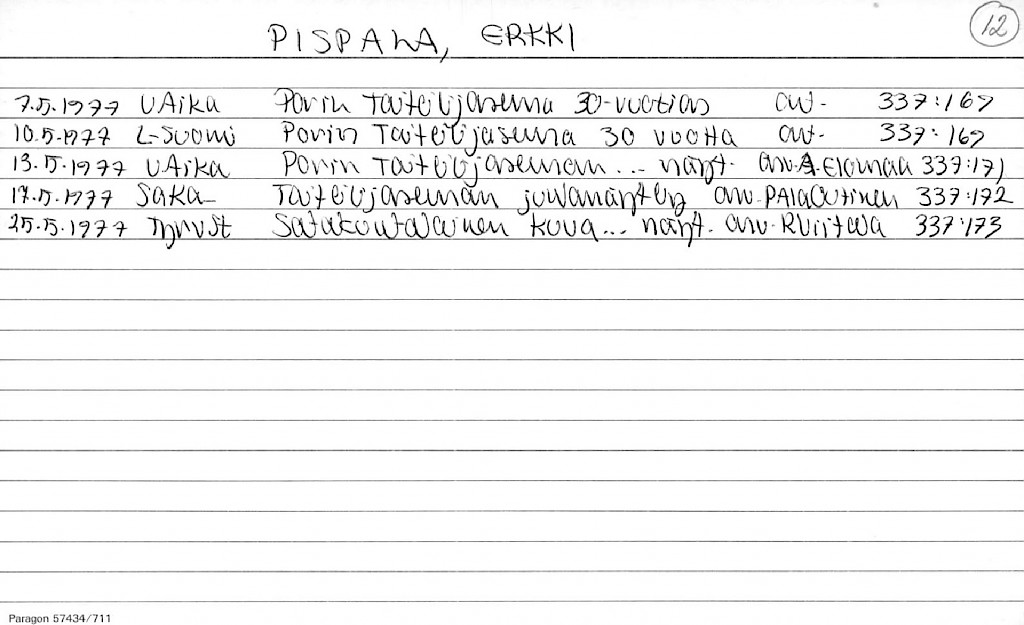 12
PISPALA, ERKKI
7.5.1977 UAika Porin Taiteilijaseura 30-vuotias art. 337:169
10.5.1977 L-Suomi Porin Taiteilijaseura 30 vuotta art. 337:169
13.5.1977 UAika Porin Taiteilijaseuran... näytt. arv. A.Elomaa 337:171
17.5.1977 SaKa Taiteilijaseuran juhlanäyttely arv. P.Ala
25.5.1977 Satakuntalainen kuva... näytt. arv. R.Viitala 337:173
Paragon 57434/711